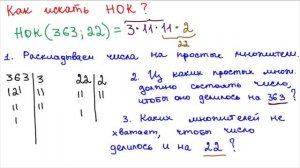 Как искать НОК?
НОК(363;22) = 3·11·11·2
22
1. Раскладываем числа на простые множители.
363 | 3 22 | 2
121 | 11 11 | 11
11 | 11 1
1
2. Из каких простых множ. должно состоять число, чтобы оно делилось на 363?
3. Каких множителей не хватает, чтобы число делилось и на 22?